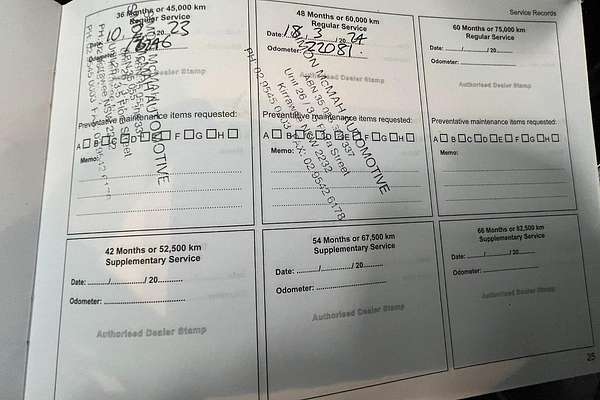 Service Records
36 Months or 45,000 km
Regular Service
Date: 10 20 23
Odometer:
Authorised Dealer Stamp
MCMAH AUTOMOTIVE
Preventative maintenance items requested:
A B C D E F G H
Memo:
48 Months or 60,000 km
Regular Service
Date: 18, 3 20 24
Odometer: 222081.
Authorised Dealer Stamp
MCMAH AUTOMOTIVE
Kirrawee NSW 2232
PH: 02 9545 FAX: 02 9542 6178
Preventative maintenance items requested:
A B C D E F G H
Memo:
60 Months or 75,000 km
Regular Service
Date: ....../....../ 20......
Odometer:
Authorised Dealer Stamp
Preventative maintenance items requested:
A B C D E F G H
Memo:
42 Months or 52,500 km
Supplementary Service
Date: ....../....../ 20......
Odometer:
Authorised Dealer Stamp
54 Months or 67,500 km
Supplementary Service
Date: ....../....../ 20......
Odometer:
Authorised Dealer Stamp
66 Months or 82,500 km
Supplementary Service
Date: ....../....../ 20......
Odometer:
Authorised Dealer Stamp
25